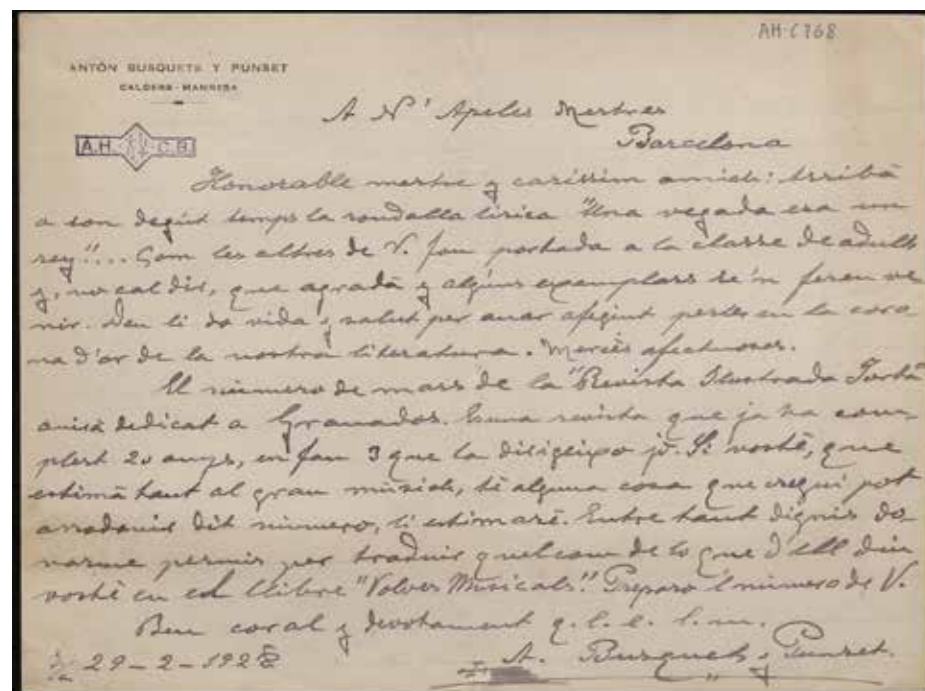 AH-C768
ANTÓN BUSQUETS Y PUNSET
CALDERS-MANRESA
A.H. C.B.
A N' Apeles Mestres
Barcelona
Honorable mestre y caríssim amich: Arribà
a son degut temps la rondalla lírica "Una vegada era un
rey"... Com les altres de V. fou portada a la classe de adults
y, no cal dir, que agradà y alguns exemplars se'n feren ve
nir. Deu li do vida y salut per anar afegint perles en la coro
na d'or de la nostra literatura. Mercès afectuoses.
El número de mars de la "Revista Ilustrada Jorbà
anirà dedicat a Granados. Es una revista que ja ha com
plert 20 anys, en fan 3 que la dirigeixo jo. Si vostè, que
estimà tant al gran músich, té alguna cosa que cregui pot
arrodonir dit número, li estimaré. Entre tant dignis do
narme permís per traduir quelcom de lo que d'ell diu
vostè en el llibre "Volves Musicals". Preparo 'l número de V.
Ben coral y devotament q. l. e. l. m.
A. Busquets y Punset.
29-2-1928